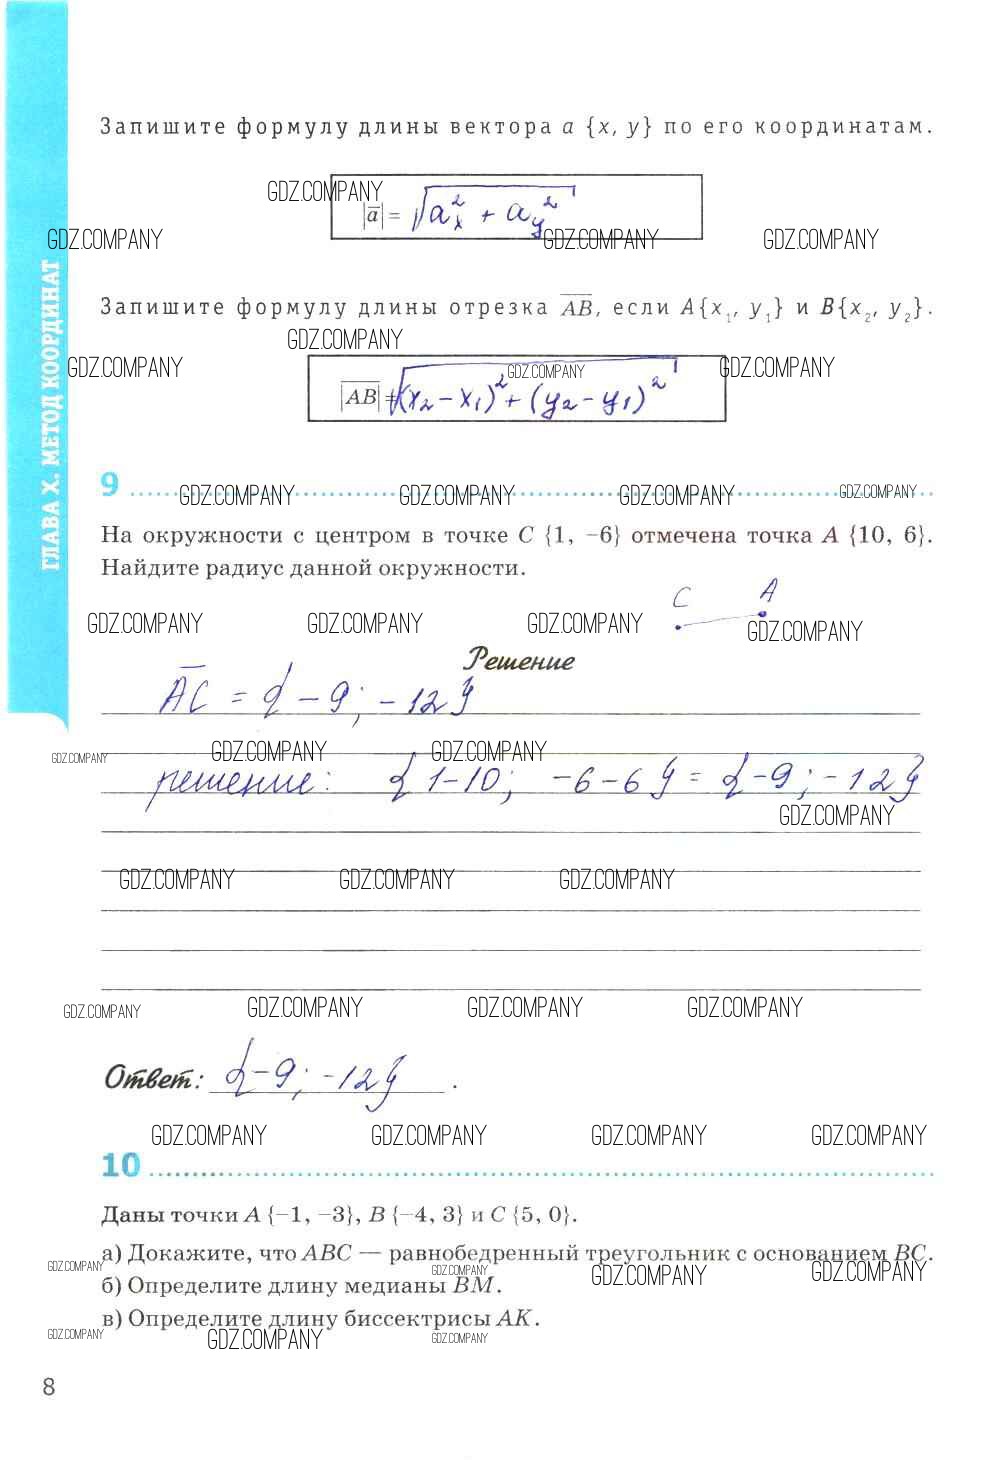 Запишите формулу длины вектора a {x, y} по его координатам.
GDZ.COMPANY
|a| = √a²ₓ + a_y²
GDZ.COMPANY GDZ.COMPANY GDZ.COMPANY
ГЛАВА X. МЕТОД КООРДИНАТ
Запишите формулу длины отрезка AB, если A{x₁, y₁} и B{x₂, y₂}.
GDZ.COMPANY
GDZ.COMPANY GDZ.COMPANY GDZ.COMPANY
|AB| = √(x₂ − x₁)² + (y₂ − y₁)²
9
GDZ.COMPANY GDZ.COMPANY GDZ.COMPANY GDZ.COMPANY
На окружности с центром в точке C {1, −6} отмечена точка A {10, 6}.
Найдите радиус данной окружности.
C A
GDZ.COMPANY GDZ.COMPANY GDZ.COMPANY GDZ.COMPANY
Решение
AC = {−9; −12}
GDZ.COMPANY GDZ.COMPANY GDZ.COMPANY
решение: {1−10; −6−6} = {−9; −12}
GDZ.COMPANY
GDZ.COMPANY GDZ.COMPANY GDZ.COMPANY
GDZ.COMPANY GDZ.COMPANY GDZ.COMPANY GDZ.COMPANY
Ответ: {−9; −12}.
GDZ.COMPANY GDZ.COMPANY GDZ.COMPANY GDZ.COMPANY
10
Даны точки A {−1, −3}, B {−4, 3} и C {5, 0}.
а) Докажите, что ABC — равнобедренный треугольник с основанием BC.
GDZ.COMPANY GDZ.COMPANY GDZ.COMPANY GDZ.COMPANY
б) Определите длину медианы BM.
в) Определите длину биссектрисы AK.
GDZ.COMPANY GDZ.COMPANY GDZ.COMPANY
8